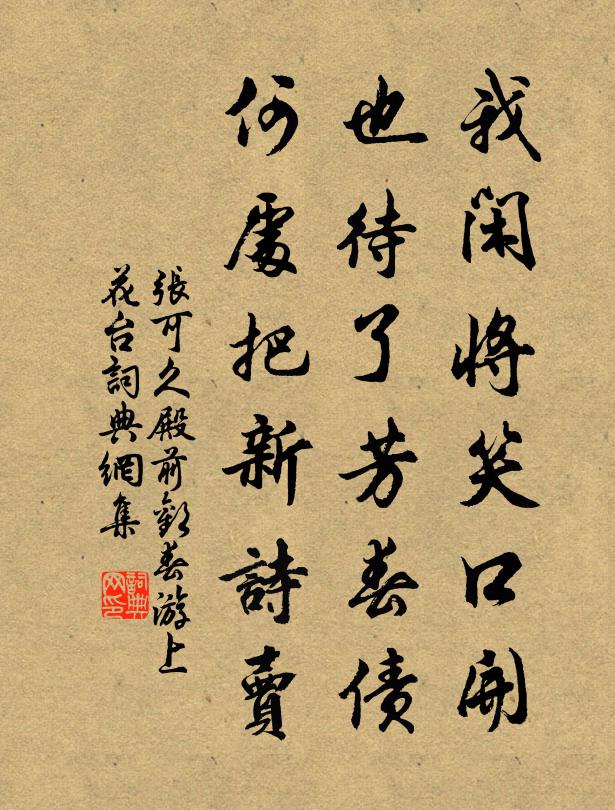 我閑將笑口開
也待了芳春債
何處把新詩賣
張可久殿前歡春游上
花台詞典網集
詞典网印